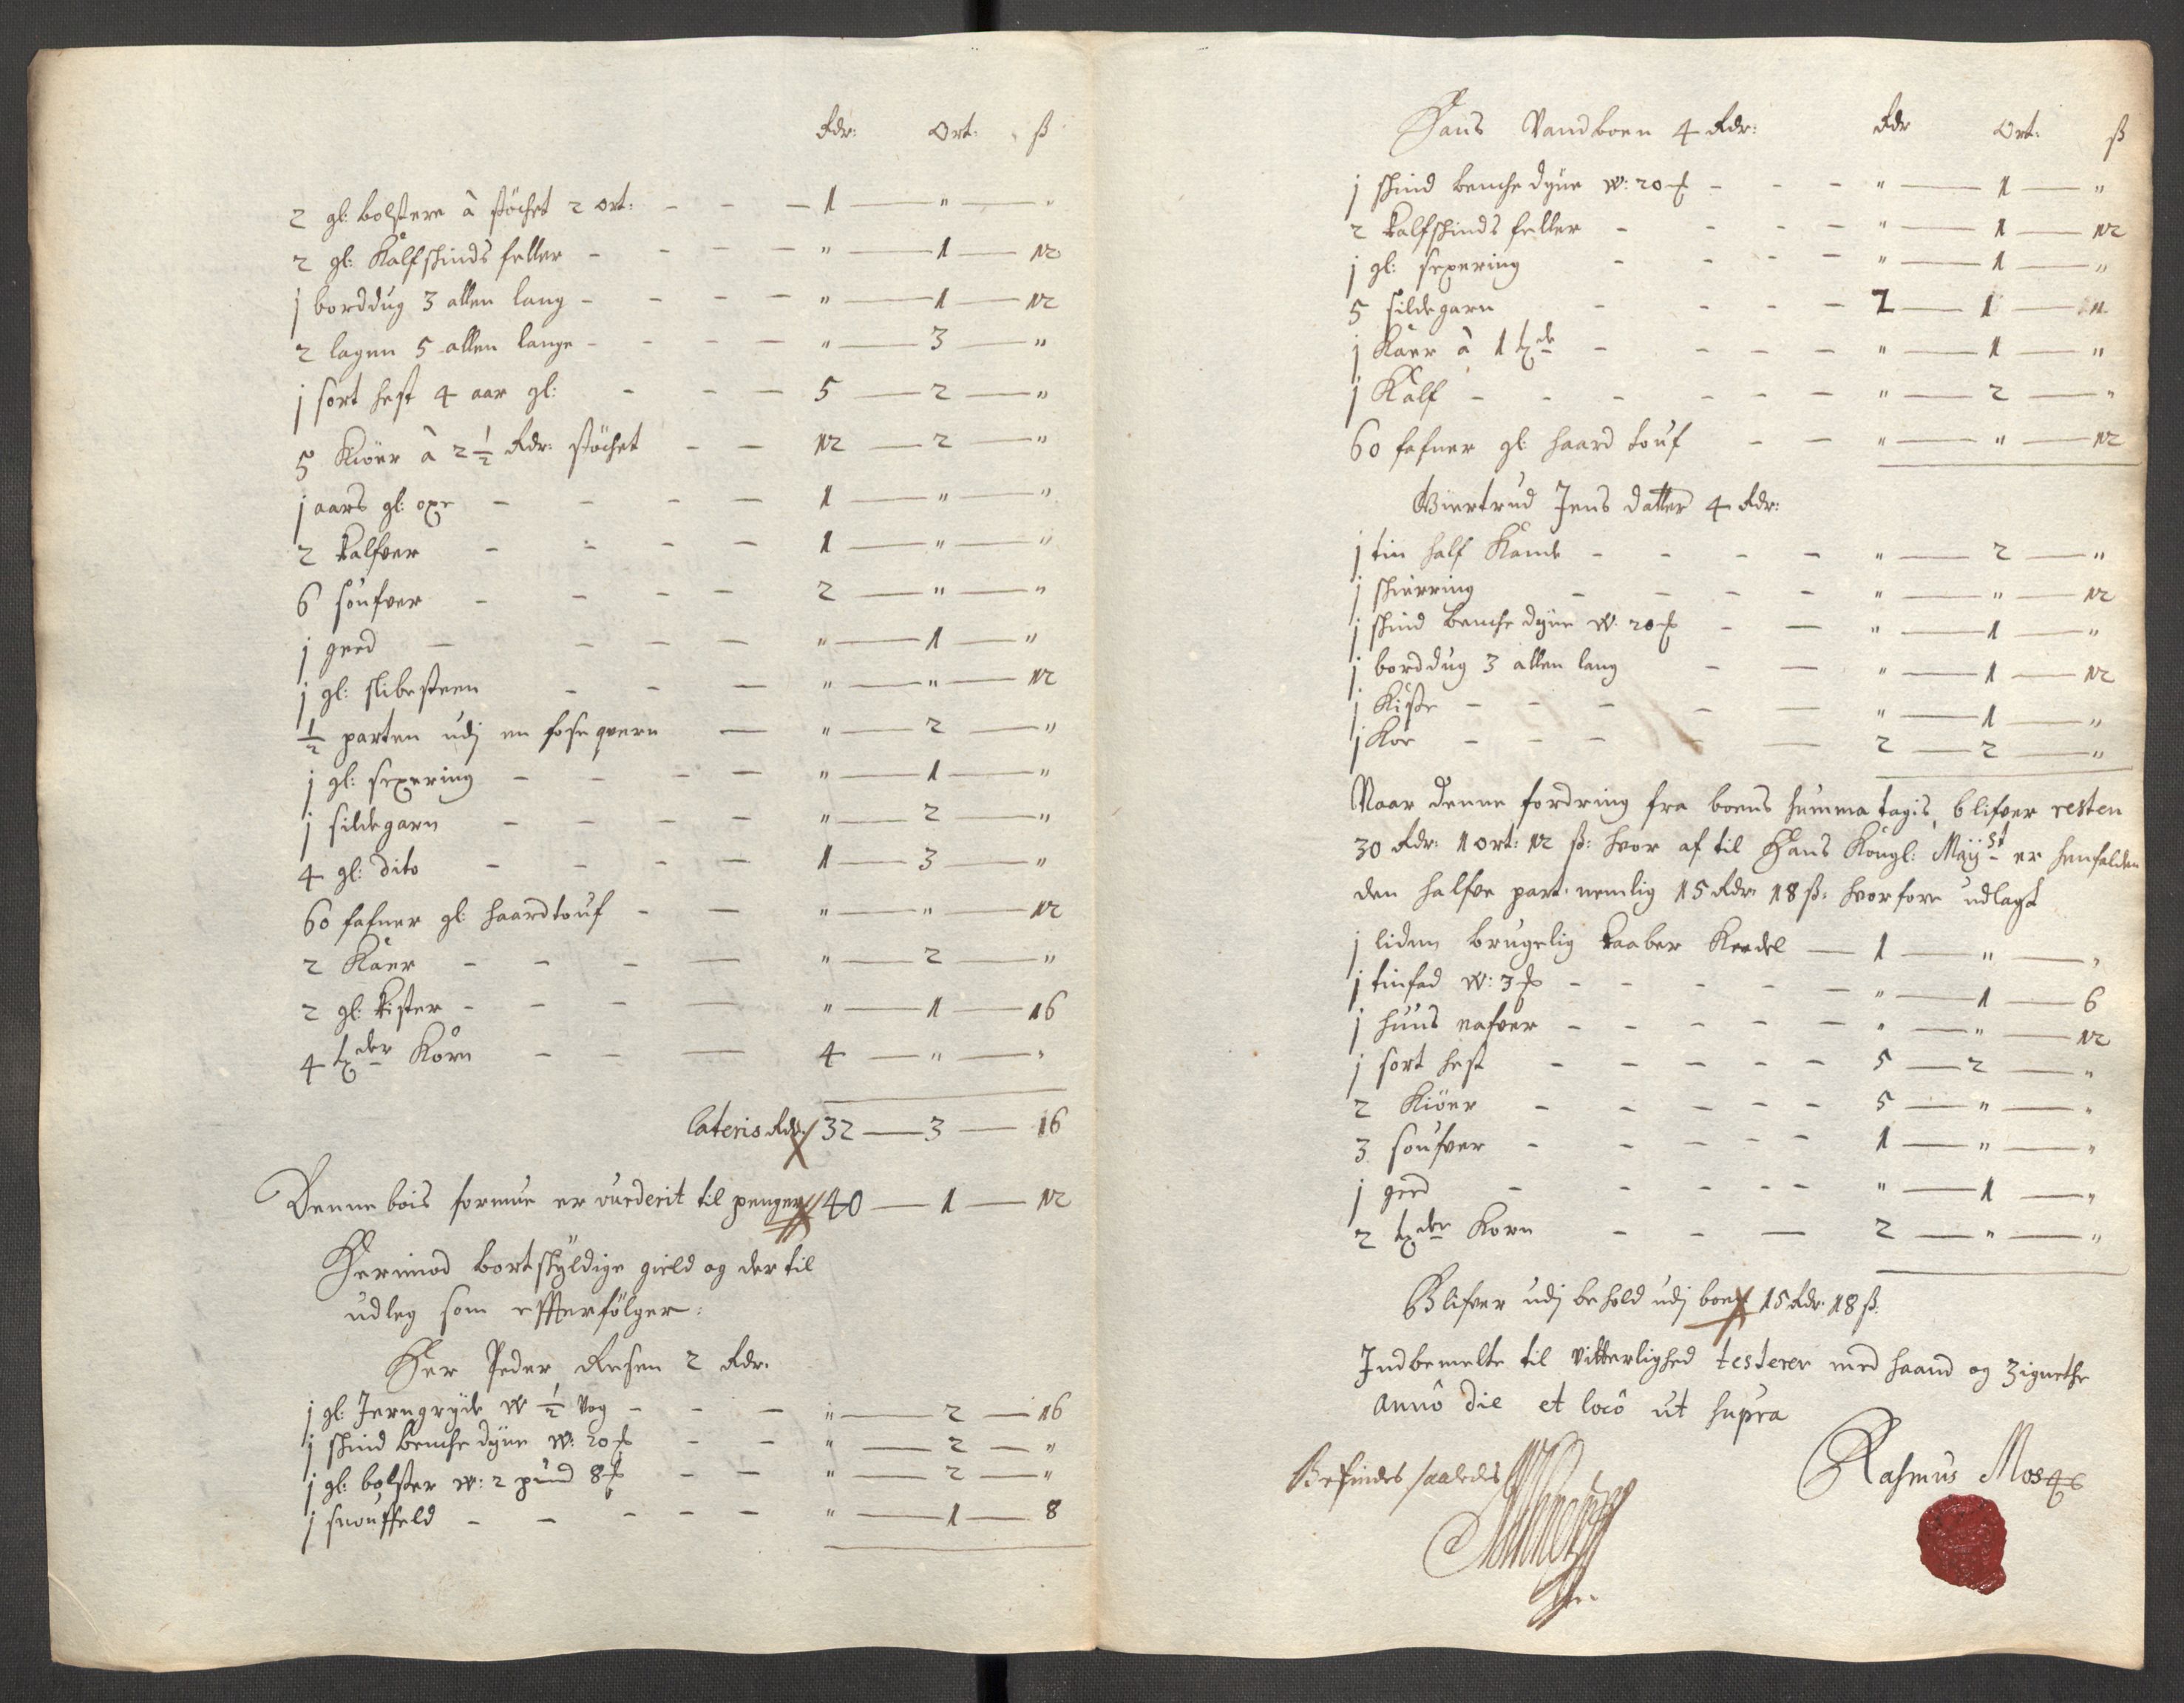 Rdr: Ort: ß
2 gl: bolstere à støchet 2 ort: - - - 1 — " — "
2 gl: Kalfskinds feller - - - - " — 1 — 12
j borddug 3 allen lang - - - - " — 1 — 12
2 lagen 5 allen lange - - - - " — 3 — "
j sort hest 4 aar gl: - - - 5 — 2 — "
5 Kiöer à 2 1/2 Rdr: støchet - - 12 — 2 — "
j aars gl: oxe - - - - 1 — " — "
2 kalfver - - - - 1 — " — "
6 soufver - - - - 2 — " — "
j geed - - - - " — 1 — "
j gl: slibesteen - - - " — " — 12
1/2 parten udj en fosse qvern — " — 2 — "
j gl: sexering - - - - " — 1 — "
j sildegarn - - - - " — 2 — "
4 gl: dito - - - - 1 — 3 — "
60 fafner gl: haardtouf - - " — " — 12
2 Kaer - - - - " — 2 — "
2 gl: kister - - - - " — 1 — 16
4 tder Korn - - - 4 — " — "
Lateris Rdr: 32 — 3 — 16
Denne bois formue er vurderit til penger 40 — 1 — 12
Herimod bortskyldige gield og der til
udleg som effterfølger:
Her Peder Resen 2 Rdr.
j gl: Jerngryde w 1/2 vog - - - " — 2 — 16
j skind benche dyne w: 20 ℔ - - " — 2 — "
j gl: bolster w: 2 pund 8 ℔ - - " — 2 — "
j snouffeld - - - - - " — 1 — 8
Hans Vandboen 4 Rdr: Rdr Ort: ß
j skind benche dyne w: 20 ℔ - - - " — 1 — "
2 kalfskinds feller - - - - " — 1 — 12
j gl: sexering - - - - " — 1 — "
5 sildegarn - - - - 2 — 1 — "
j Kaer à 1 tde - - - - " — 1 — "
j Kalf - - - - - - " — 2 — "
60 fafner gl: haard touf - - " — " — 12
Giertrud Jens datter 4 Rdr:
j tin half Kande - - - - " — 2 — "
j skierring - - - - " — " — 12
j skind benche dyne w: 20 ℔ - — " — 1 — "
j borddug 3 allen lang - — " — 1 — 12
j Kiste - - - - — " — 1 — "
j Koe - - - - — 2 — 2 — "
Naar denne fordring fra boens summa tagis, blifver resten
30 Rdr: 1 ort: 12 ß: hvor af til Hans Kongl: Mayst er henfalden
den halfve part nemlig 15 Rdr: 18 ß: hvorfore udlagt
j liden brugelig kaaber Keedel — 1 — " — "
j tinfad w: 3 ℔ - - - - - " — 1 — 6
j huus nafver - - - - - " — " — 12
j sort hest - - - - - 5 — 2 — "
2 Kiöer - - - - - 5 — " — "
3 soufver - - - - - 1 — " — "
j geed - - - - - " — 1 — "
2 tder Korn - - — 2 — " — "
Blifver udj behold udj boet 15 Rdr: 18 ß.
Indbemelte til vitterlighed testerer med haand og Zignethe
Anno die et locô ut supra
Befindes saaledes
Rasmus Mos